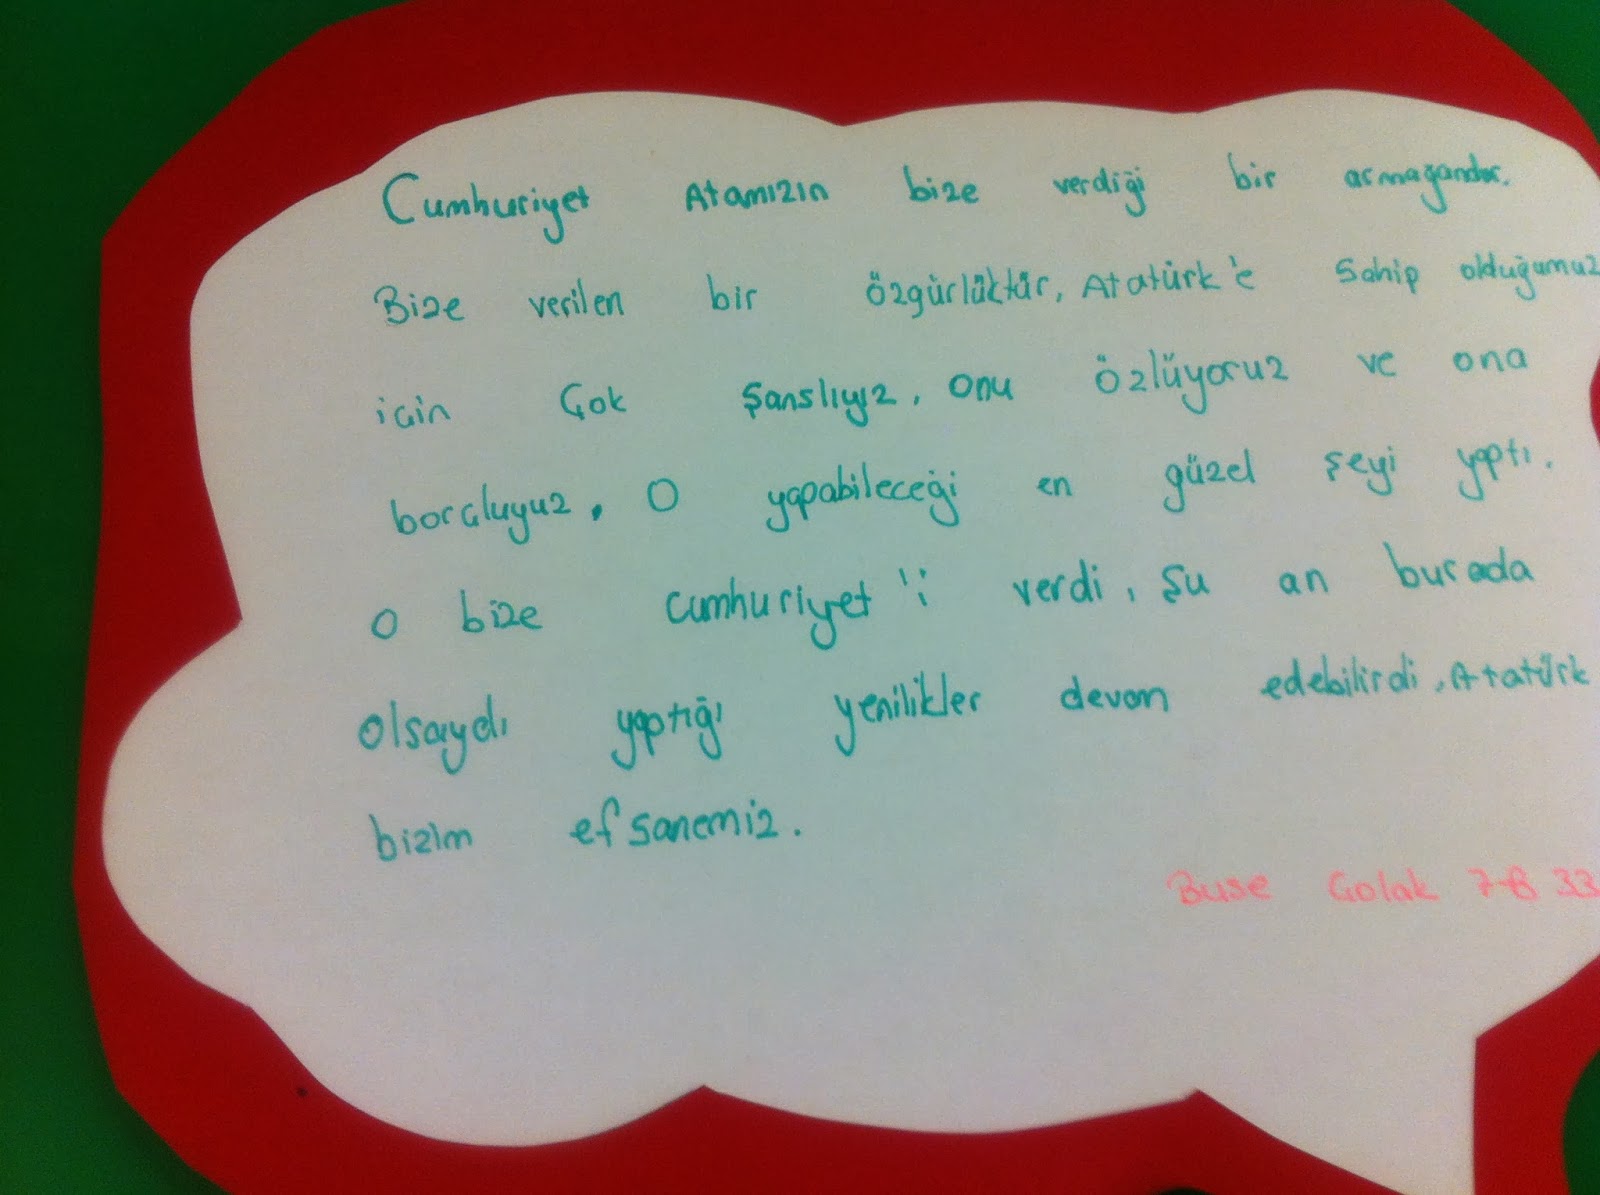 Cumhuriyet Atamızın bize verdiği bir armağandır.
Bize verilen bir özgürlüktür, Atatürk'e sahip olduğumuz
için Çok Şanslıyız. onu özlüyoruz ve ona
borçluyuz. O yapabileceği en güzel şeyi yaptı.
O bize cumhuriyet'i verdi, şu an burada
olsaydı yaptığı yenilikler devam edebilirdi. Atatürk
bizim efsanemiz.
Buse Çolak 7-B 33